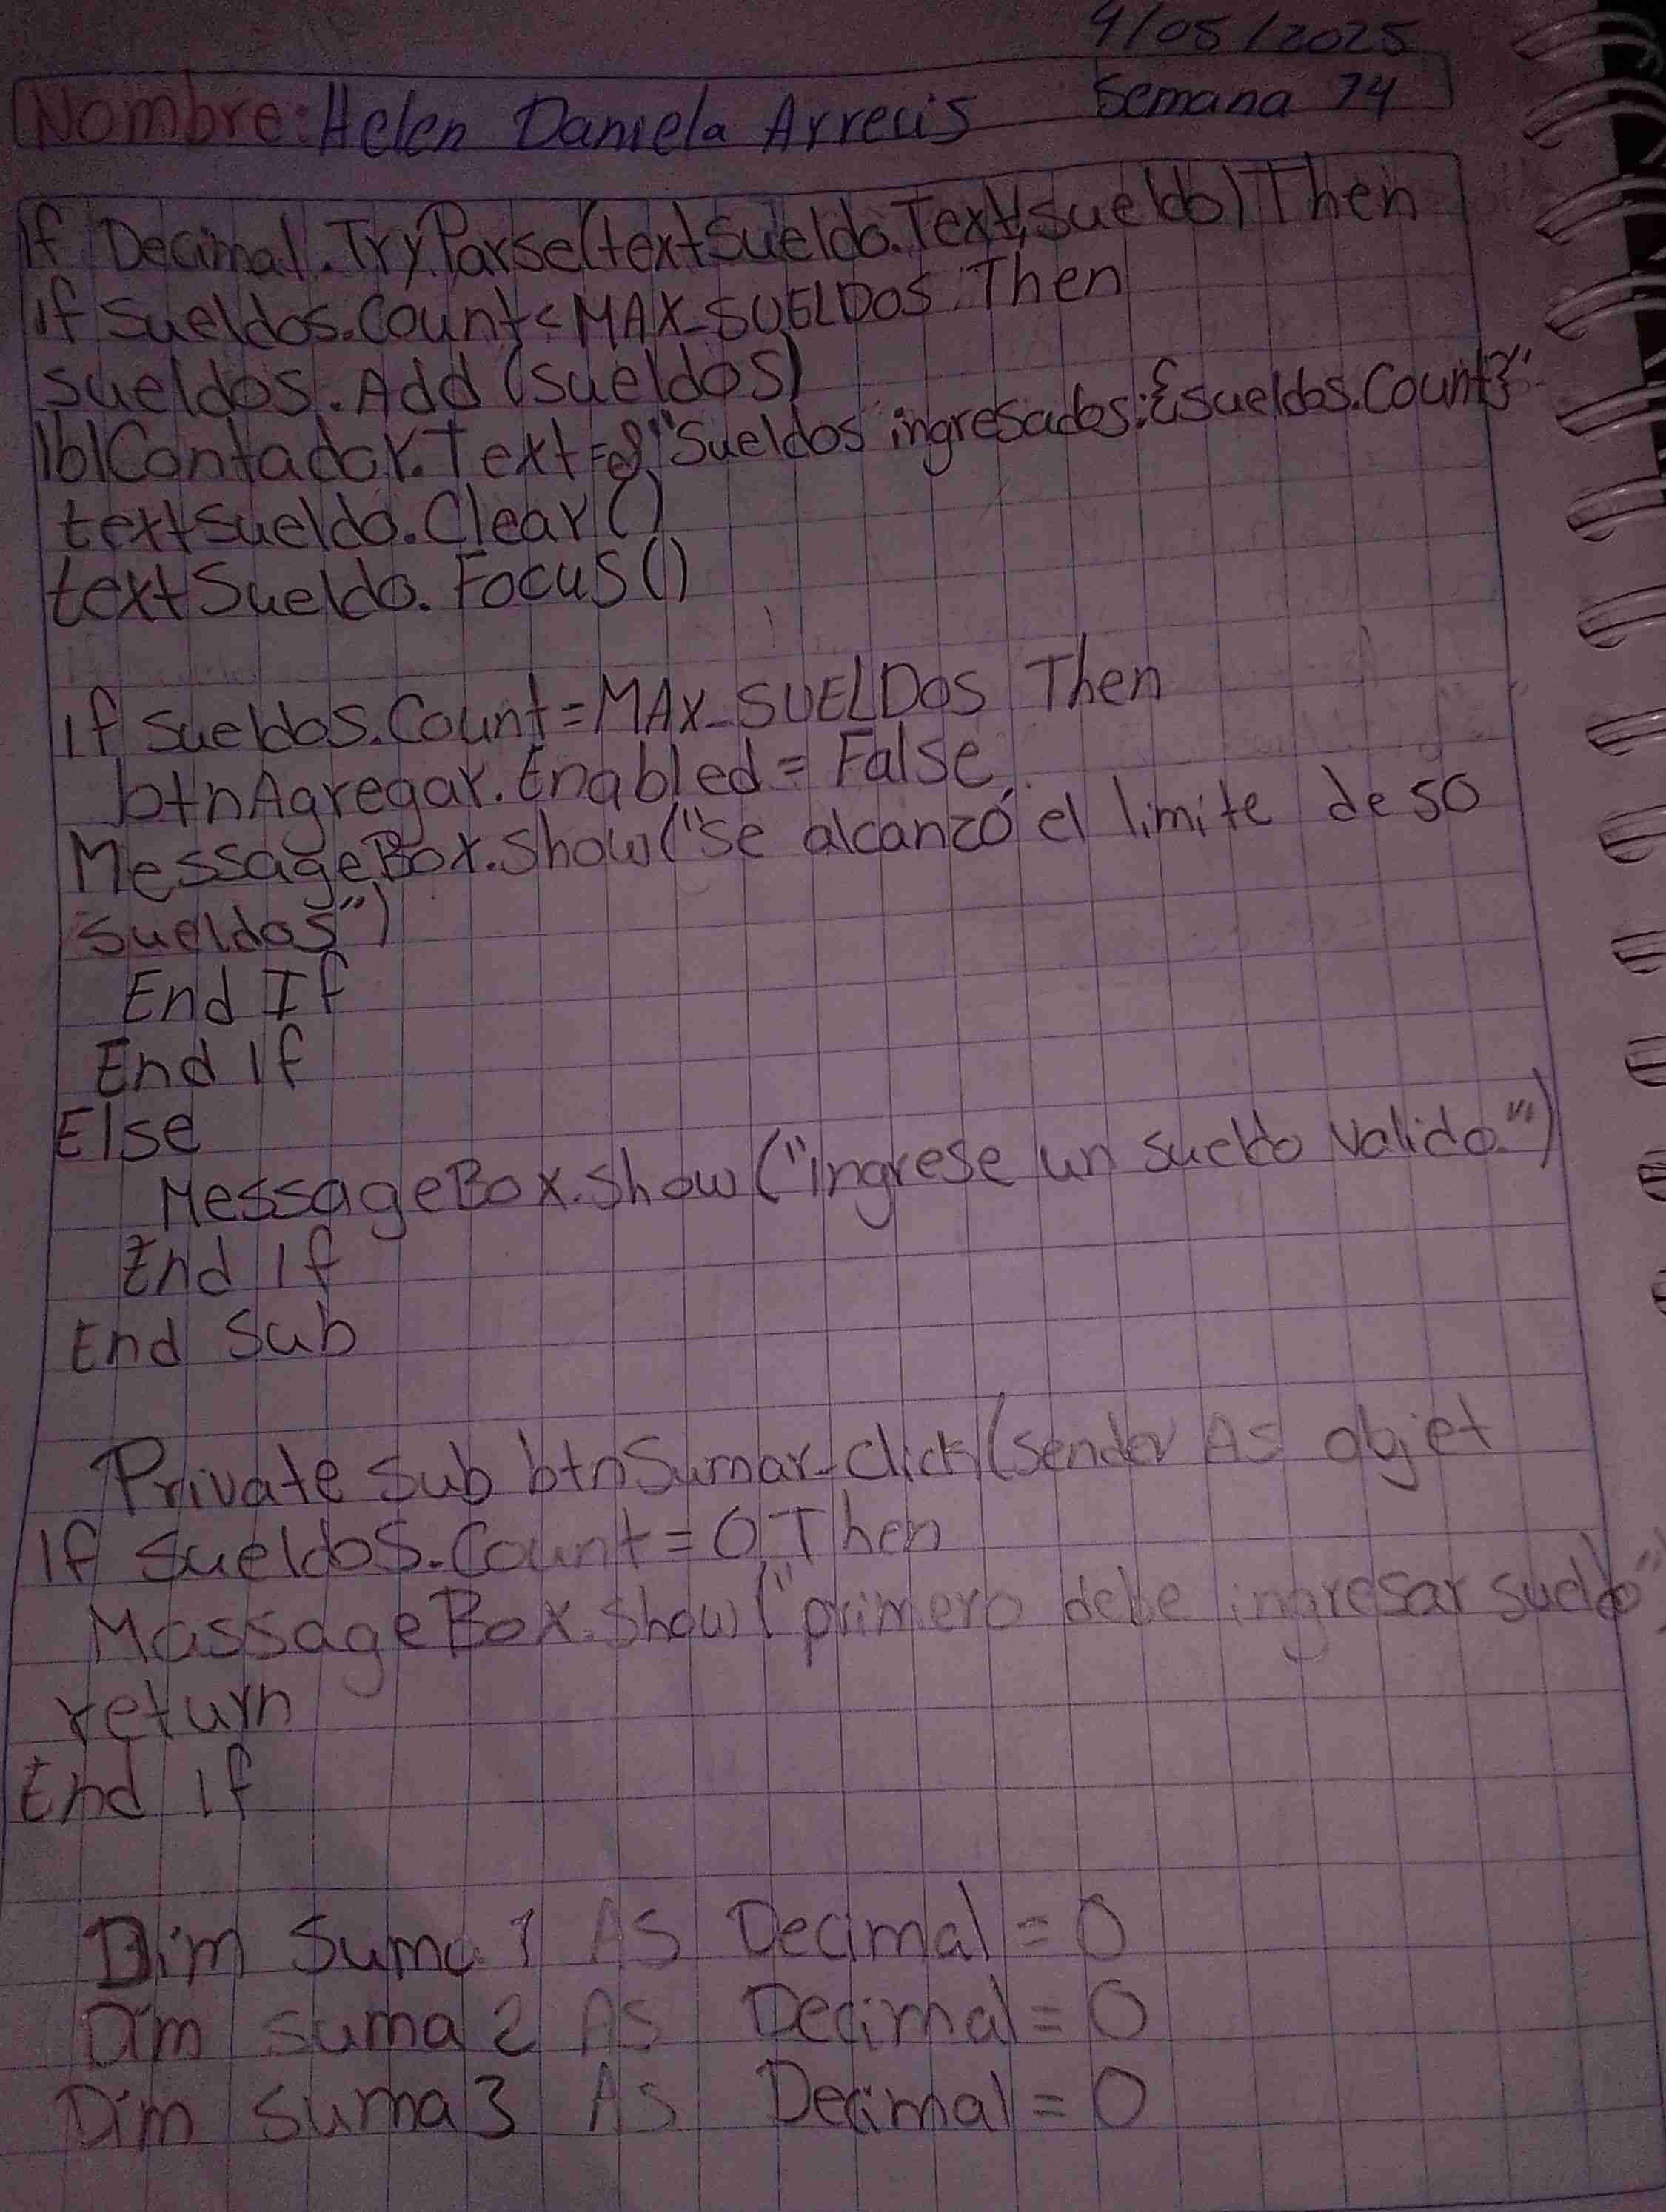 9/05/2025
Nombre: Helen Daniela Arrecis Semana 14
If Decimal.TryParse(textSueldo.Text, sueldo) Then
If Sueldos.Count < MAX_SUELDOS Then
sueldos.Add (sueldos)
lblContador.Text = $"Sueldos ingresados: {sueldos.Count}"
textSueldo.Clear()
textSueldo.Focus()
If Sueldos.Count = MAX_SUELDOS Then
btnAgregar.Enabled = False
MessageBox.show("se alcanzó el limite de 50
sueldos")
End If
End If
Else
MessageBox.show("ingrese un sueldo valido.")
End If
End Sub
Private Sub btnSumar_Click(sender As objet
If Sueldos.Count = 0 Then
MassageBox.Show("primero debe ingresar sueldo")
return
End If
Dim Suma 1 As Decimal = 0
Dim suma 2 As Decimal = 0
Dim suma 3 As Decimal = 0